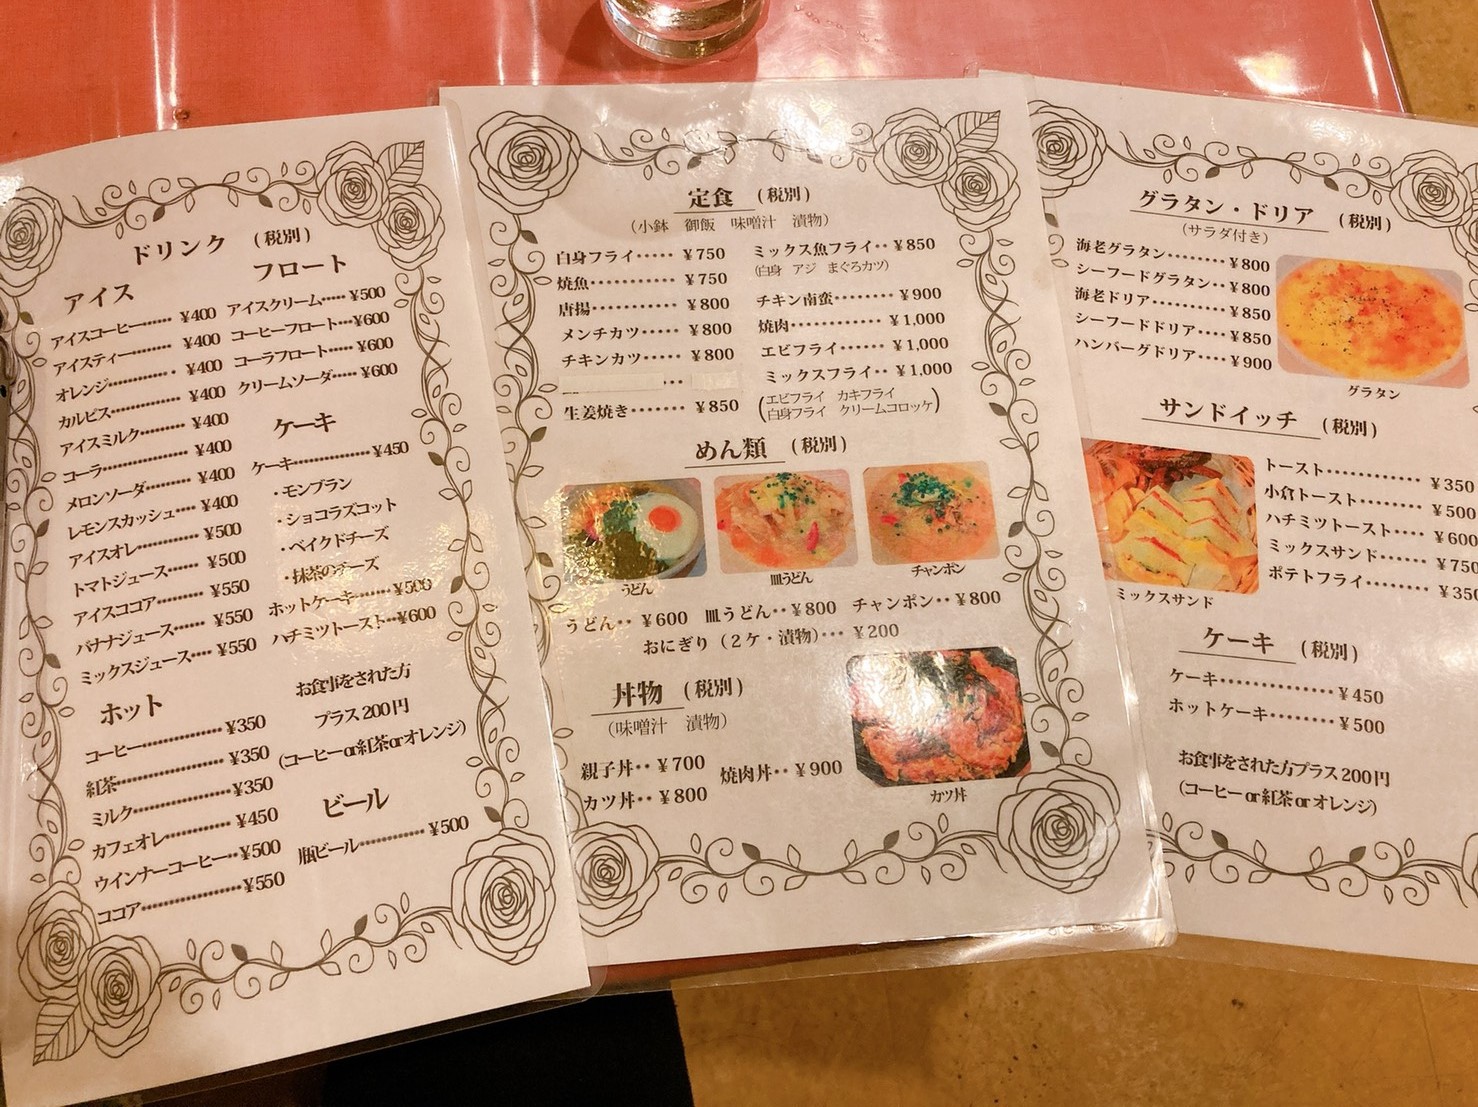 ドリンク (税別)
アイス
アイスコーヒー…… ¥400
アイスティー…… ¥400
オレンジ…… ¥400
カルピス…… ¥400
アイスミルク…… ¥400
コーラ…… ¥400
メロンソーダ…… ¥400
レモンスカッシュ…… ¥400
アイスオレ…… ¥500
トマトジュース…… ¥500
アイスココア…… ¥550
バナナジュース…… ¥550
ミックスジュース…… ¥550
ホット
コーヒー…… ¥350
紅茶…… ¥350
ミルク…… ¥350
カフェオレ…… ¥450
ウインナーコーヒー‥¥500
ココア…… ¥550
フロート
アイスクリーム…… ¥500
コーヒーフロート…¥600
コーラフロート…… ¥600
クリームソーダ…… ¥600
ケーキ
ケーキ…… ¥450
・モンブラン
・ショコラズコット
・ベイクドチーズ
・抹茶のチーズ
ホットケーキ…… ¥500
ハチミツトースト‥¥600
お食事をされた方
プラス200円
(コーヒーor紅茶orオレンジ)
ビール
瓶ビール…… ¥500
定食 (税別)
(小鉢 御飯 味噌汁 漬物)
白身フライ…… ¥750
焼魚…… ¥750
唐揚…… ¥800
メンチカツ…… ¥800
チキンカツ…… ¥800
…
生姜焼き…… ¥850
ミックス魚フライ‥ ¥850
(白身 アジ まぐろカツ)
チキン南蛮…… ¥900
焼肉…… ¥1,000
エビフライ…… ¥1,000
ミックスフライ‥ ¥1,000
(エビフライ カキフライ
白身フライ クリームコロッケ)
めん類 (税別)
うどん
皿うどん
チャンポン
うどん‥ ¥600 皿うどん‥ ¥800 チャンポン‥ ¥800
おにぎり (2ケ・漬物)… ¥200
丼物 (税別)
(味噌汁 漬物)
親子丼‥ ¥700
カツ丼‥ ¥800
焼肉丼‥ ¥900
カツ丼
グラタン・ドリア (税別)
(サラダ付き)
海老グラタン…… ¥800
シーフードグラタン‥ ¥800
海老ドリア…… ¥850
シーフードドリア…… ¥850
ハンバーグドリア…… ¥900
グラタン
サンドイッチ (税別)
トースト…… ¥350
小倉トースト…… ¥500
ハチミツトースト…… ¥600
ミックスサンド…… ¥750
ポテトフライ…… ¥350
ミックスサンド
ケーキ (税別)
ケーキ…… ¥450
ホットケーキ…… ¥500
お食事をされた方プラス200円
(コーヒーor紅茶orオレンジ)